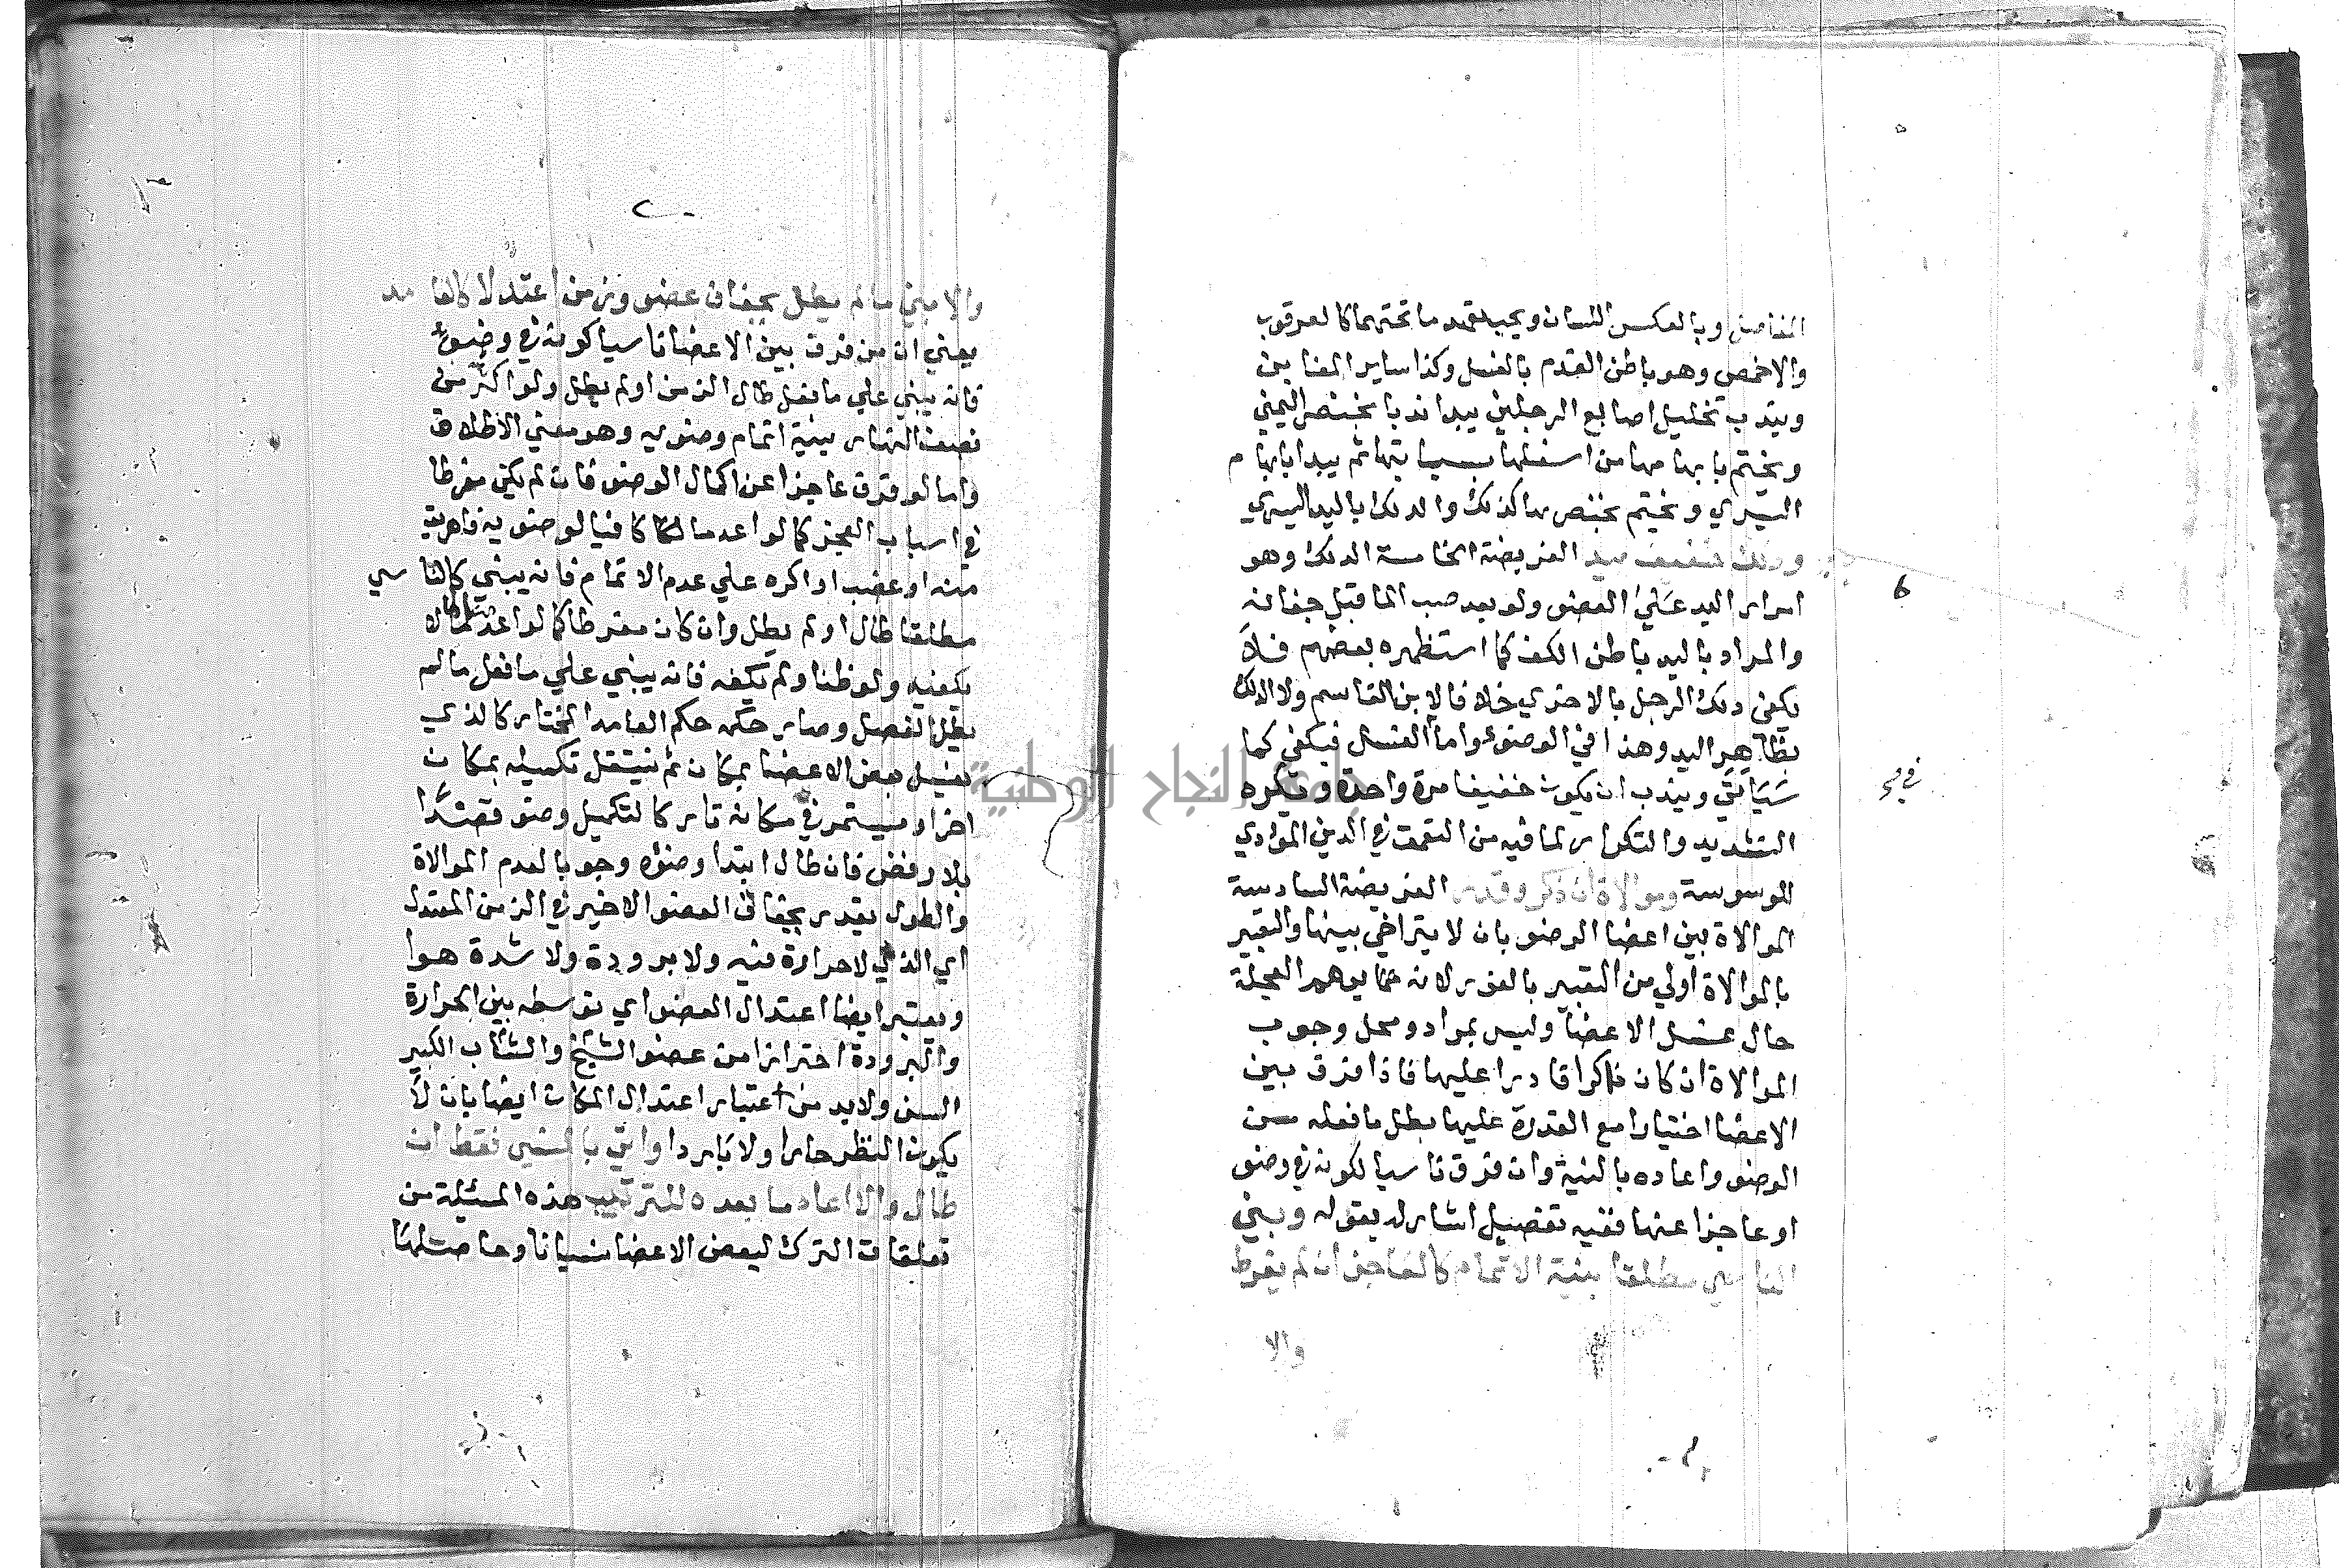 المفاصل وبالعكس اللسان ويجب تعهد ما تحتهما كالعرقوب
والاخمص وهو باطن القدم بالغسل وكذا ساير المغابن
ويندب تخليل اصابع الرجلين يبدا ندبا بخنصر اليمني
ويختم بابهامها من اسفلها بسبابتها ثم يبدا بابهام
اليسري ويختم بخنصرها كذلك والدلك باليد اليسري
ودلك خفيف بيد الفريضة الخامسة الدلك وهو
امرار اليد علي العضو ولو بعد صب الما قبل جفافه
والمراد باليد باطن الكف كما استظهره بعضهم فلا
يكفي دلك الرجل بالاخري خلافا لابن القاسم ولا الدلك
بظاهر اليد وهذا في الوضوء واما الغسل فيكفي كما
سياتي ويندب ان يكون خفيفا مرة واحدة ويكره
التشديد والتكرار لما فيه من التعمق في الدين المودي
للوسوسة وموالاة ان ذكر وقدر الفريضة السادسة
الموالاة بين اعضا الوضو بان لا يتراخي بينها والتعبير
بالموالاة اولي من التعبير بالفور لانه مما يوهم العجلة
حال غسل الاعضا وليس بمراد ومحل وجوب
الموالاة ان كان ذاكرا قادرا عليها فاذا فرق بين
الاعضا اختيارا مع القدرة عليها بطل ما فعله من
الوضو واعاده بالنية وان فرق ناسيا لكونه في وضو
او عاجزا عنها ففيه تفصيل اشار له بقوله وبني
الناسي مطلقا بنية الاتمام كالعاجز ان لم يفرط
والا
جامعة النجاح الوطنية
والا بني ما لم يطل بجفاف عضو وزمن اعتدلا كالعامد
يعني ان من فرق بين الاعضا ناسيا كونه في وضوء
فانه يبني علي ما فعل طال الزمن او لم يطل ولو اكثر من
نصف النهار بنية اتمام وضويه وهو معني الاطلاق
واما لو فرق عاجزا عن اكمال الوضو فان لم يكن مفرطا
في اسباب العجز كما لو اعد ما كافيا لوضويه فاهريق
منه او غصب او اكره علي عدم الاتمام فانه يبني كالناسي
مطلقا طال او لم يطل وان كان مفرطا كما لو اعد ما لا
يكفيه ولو ظنا ولم يكفه فانه يبني علي ما فعل ما لم
يطل الفصل وصار حكمه حكم العامد المختار كالذي
يغسل بعض الاعضا بمكان ثم ينتقل تكميله بمكان
اخر او يستمر في مكانه تاركا لتكميل وضو قصدا
بلا رفض فان طال ابتدا وضوه وجوبا لعدم الموالاة
والطول يقدر بجفاف العضو الاخير في الزمن المعتدل
اي الذي لا حرارة فيه ولا برودة ولا شدة هوا
ويعتبر ايضا اعتدال العضو اي توسطه بين الحرارة
والبرودة احترازا من عضو الشيخ والشاب الكبير
السن ولا بد من اعتبار اعتدال المكان ايضا بان لا
يكون القطر حارا ولا باردا واتي بالمنسي فقط ان
طال والا اعاد ما بعده للترتيب هذه المسئلة من
تعلقات الترك لبعض الاعضا نسيانا وحاصلها